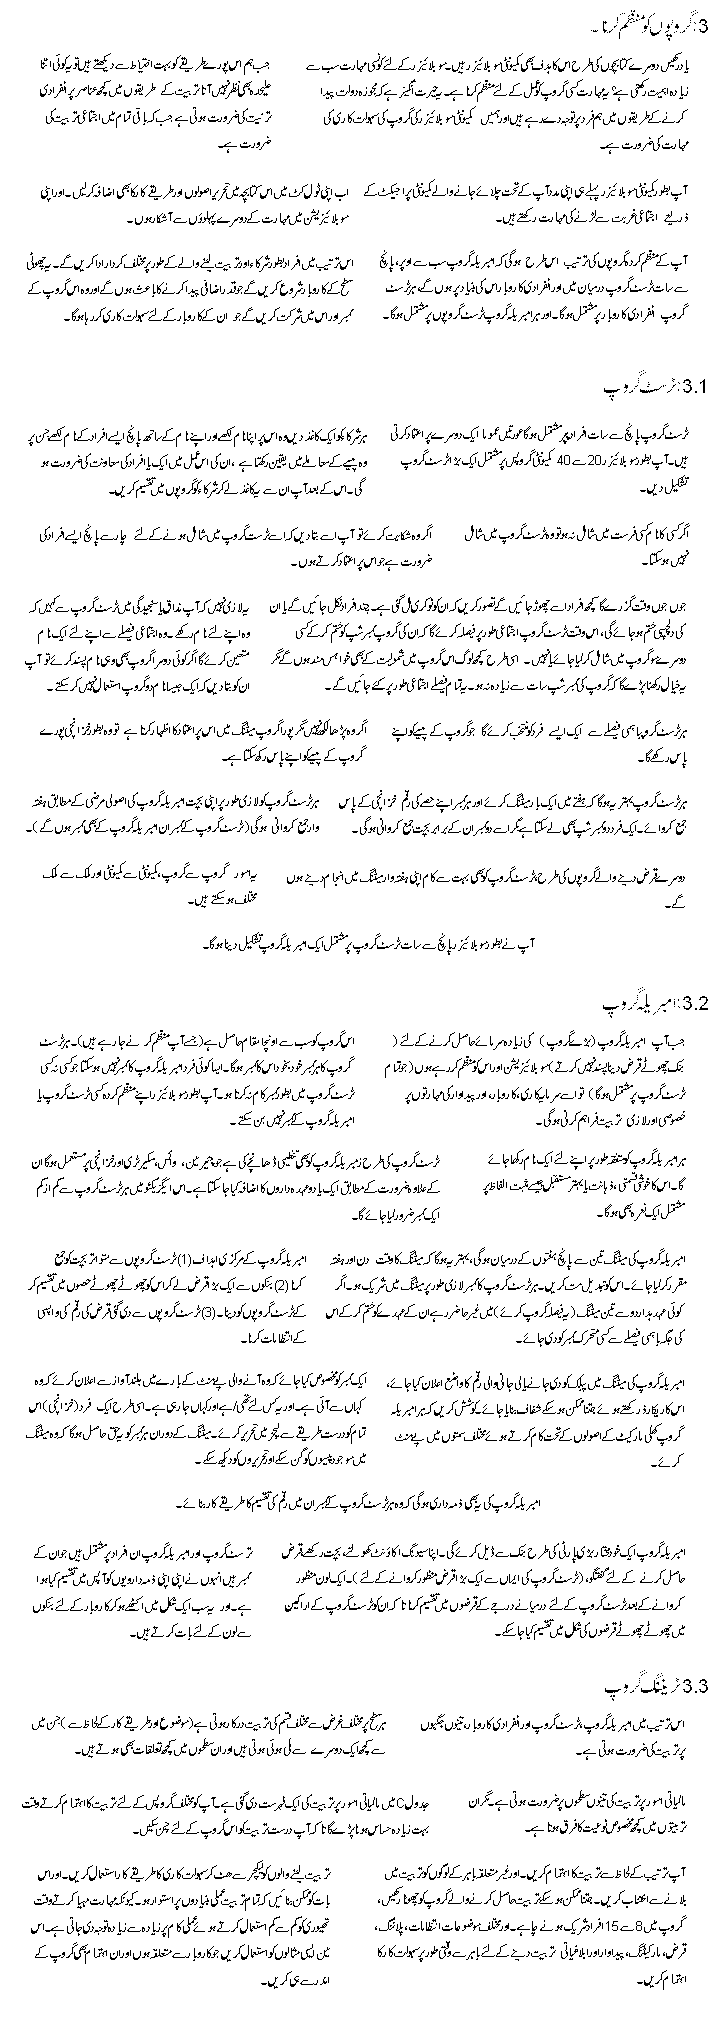 3: گروپوں کو منظم کرنا ۔
یاد رکھیں دوسرے کتابچوں کی طرح اس کا ہدف بھی کمیونٹی موبلائیزر ہیں۔ موبلائیزر کے لئے کونسی مہارت سب سے
زیادہ اہمیت رکھتی ہے؟ یہ مہارت کسی گروپ کو عمل کے لئے منظم کرنا ہے۔ یہ حیرت انگیز ہے کہ مجوزہ دولت پیدا
کرنے کے طریقوں میں ہم فرد پر توجہ دے رہے ہیں اور ہمیں کمیونٹی موبلائیزر کی گروپ کی سہولت کاری کی
مہارت کی ضرورت ہے۔
جب ہم اس پورے طریقے کو بہت احتیاط سے دیکھتے ہیں تو یہ کوئی اتنا
علیحدہ بھی نظر نہیں آتا تربیت کے طریقوں میں کچھ عناصر پر انفرادی
تربیت کی ضرورت ہوتی ہے جب کہ باقی تمام میں اجتماعی تربیت کی
ضرورت ہے۔
آپ بطور کمیونٹی موبلائیزر پہلے ہی اپنی مدد آپ کے تحت چلائے جانے والے کمیونٹی پراجیکٹ کے
ذریعے اجتماعی غربت سے لڑنے کی مہارت رکھتے ہیں۔
اب اپنی ٹول کٹ میں اس کتابچہ میں تحریر اصولوں اور طریقے کار کا بھی اضافہ کر لیں۔ اور اپنی
موبلائیزیشن میں مہارت کے دوسرے پہلوؤں سے آشکار ہوں۔
آپ کے منظم کردہ گروپوں کی ترتیب اس طرح ہوگی کہ امبریلہ گروپ سب سے اوپر، پانچ
سے سات ٹرسٹ گروپ درمیان میں اور انفرادی کاروبار اس کی بنیاد پر ہوں گے، ہر ٹرسٹ
گروپ انفرادی کاروبار پر مشتمل ہوگا۔ اور ہر امبریلہ گروپ ٹرسٹ گروپوں پر مشتمل ہوگا۔
اس ترتیب میں افراد بطور شرکاء اور تربیت لینے والے کے طور پر مختلف کردار ادا کریں گے۔ یہ چھوٹی
سطح کے کاروبار شروع کریں گے جو قدر اضافی پیدا کرنے کا باعث ہوں گے اور وہ اس گروپ کے
ممبر اور اس میں شرکت کریں گے جو ان کے کاروبار کے لئے سہولت کاری کر رہا ہوگا۔
3.1: ٹرسٹ گروپ
ٹرسٹ گروپ پانچ سے سات افراد پر مشتمل ہوگا عورتیں عموما ایک دوسرے پر اعتماد کرتی
ہیں۔ آپ بطور موبلائیزر 20 سے 40 کمیونٹی گروپس پر مشتمل ایک بڑا ٹرسٹ گروپ
تشکیل دیں۔
ہر شرکاء کو ایک کاغذ دیں وہ اس پر اپنا نام لکھے اور اپنے نام کے ساتھ پانچ ایسے افراد کے نام لکھے جن پر
وہ پیسے کے معاملے میں یقین رکھتا ہے، ان کی اس عمل میں ایک یا افراد کی معاونت کی ضرورت ہو
گی۔ اس کے بعد آپ ان سے یہ کاغذ لے کر شرکاء کو گروپوں میں تقسیم کریں۔
اگر کسی کا نام کسی فہرست میں شامل نہ ہو تو وہ ٹرسٹ گروپ میں شامل
نہیں ہو سکتا۔
اگر وہ شکایت کرے تو آپ اسے بتا دیں کہ اسے ٹرسٹ گروپ میں شامل ہونے کے لئے چار سے پانچ ایسے افراد کی
ضرورت ہے جو اس پر اعتماد کرتے ہوں۔
جوں جوں وقت گزرے گا کچھ افراد اسے چھوڑ جائیں گے تصور کریں کہ ان کو نوکری مل گئی ہے۔ چند افراد نکل جائیں گے یا ان
کی دلچسپی ختم ہو جائے گی، اس وقت ٹرسٹ گروپ اجتماعی طور پر فیصلہ کرے گا کہ ان کی گروپ ممبر شپ کو ختم کر کے کسی
دوسرے کو گروپ میں شامل کر لیا جائے یا نہیں۔ اسی طرح کچھ لوگ اس گروپ میں شمولیت کے بھی خواہس مند ہوں گے مگر
یہ خیال رکھنا پڑے گا کہ گروپ کی ممبر شپ سات سے زیادہ نہ ہو۔ یہ تمام فیصلے اجتماعی طور پر کئے جائیں گے۔
یہ لازمی نہیں کہ آپ مذاق یا سنجیدگی میں ٹرسٹ گروپ سے کہیں کہ
وہ اپنے لئے نام رکھے۔ وہ اجتماعی فیصلے سے اپنے لئے ایک نام
متعین کرے گا اگر کوئی دوسرا گروپ بھی وہی نام پسند کرے تو آپ
ان کو بتا دیں کہ ایک جیسا نام دو گروپ استعمال نہیں کر سکتے۔
ہر ٹرسٹ گروپ باہمی فیصلے سے ایک ایسے فرد کو منتخب کرے گا جو گروپ کے پیسے کو اپنے
پاس رکھے گا۔
اگر وہ پڑھا لکھا نہیں مگر پورا گروپ میٹنگ میں اس پر اعتماد کا اظہار کرتا ہے تو وہ بطور خزانچی پورے
گروپ کے پیسے کو اپنے پاس رکھ سکتا ہے۔
ہر ٹرسٹ گروپ بہتر یہ ہوگا کہ ہفتے میں ایک بار میٹنگ کرے اور ہر ممبر اپنے حصے کی رقم خزانچی کے پاس
جمع کروائے۔ ایک فرد دو ممبر شپ بھی لے سکتا ہے مگر اسے دو ممبران کے برابر بچت جمع کروانی ہوگی۔
ہر ٹرسٹ گروپ کو لازمی طور پر اپنی بچت امبریلہ گروپ کی اصولی مرضی کے مطابق ہفتہ
وار جمع کروانی ہوگی (ٹرسٹ گروپ کے ممبران امبریلہ گروپ کے بھی ممبر ہوں گے)۔
دوسرے قرض دینے والے گروپوں کی طرح، ٹرسٹ گروپ کو بھی بہت سے کام اپنی ہفتہ وار میٹنگ میں انجام دینے ہوں
گے۔
یہ امور گروپ سے گروپ، کمیونٹی سے کمیونٹی اور ملک سے ملک
مختلف ہو سکتے ہیں۔
آپ نے بطور موبلائیزر پانچ سے سات ٹرسٹ گروپ پر مشتمل ایک امبریلہ گروپ تشکیل دینا ہوگا۔
3.2: امبریلہ گروپ
جب آپ امبریلہ گروپ (بڑے گروپ) کی زیادہ سرمائے حاصل کرنے کے لئے (
بنک چھوٹے قرض دینا پسند نہیں کرتے) موبلائیزیشن اور اس کو منظم کر رہے ہوں (جو تمام
ٹرسٹ گروپ پر مشتمل ہوگا) تو اسے سرمایہ کاری، کاروبار، اور پیداوار کی مہارتوں پر
خصوصی اور لازمی تربیت فراہم کرنی ہوگی۔
اس گروپ کو سب سے اونچا مقام حاصل ہے (جسے آپ منظم کرنے جا رہے ہیں)۔ ہر ٹرسٹ
گروپ کا ہر ممبر خود بخود اس کا ممبر ہوگا۔ ایسا کوئی فرد امبریلہ گروپ کا ممبر نہیں ہو سکتا جو کسی نہ کسی
ٹرسٹ گروپ میں بطور ممبر کام نہ کرتا ہو۔ آپ بطور موبلائیزر اپنے منظم کردہ کسی ٹرسٹ گروپ یا
امبریلہ گروپ کے ممبر نہیں بن سکتے۔
ہر امبریلہ گروپ کو متفقہ طور پر اپنے لئے ایک نام رکھا جائے
گا۔ اس کا خوشی قسمتی، ذہانت یا بہتر مستقبل جیسے مثبت الفاظ پر
مشتمل ایک نعرہ بھی ہوگا۔
ٹرسٹ گروپ کی طرح امبریلہ گروپ کو بھی تنظیمی ڈھانچے کی ہے جو چیئرمین، وائس، سکیرٹری اور خزانچی پر مستعمل ہوگا ان
کے علاوہ ضرورت کے مطابق ایک یا دو عہدہ داروں کا اضافہ کیا جا سکتا ہے۔ اس ایگزیکٹو میں ہر ٹرسٹ گروپ سے کم از کم
ایک ممبر ضرور لیا جائے گا۔
امبریلہ گروپ کی میٹنگ تین سے پانچ ہفتوں کے درمیان ہوگی، بہتر یہ ہوگا کہ میٹنگ کا وقت دن اور ہفتہ
مقرر کر لیا جائے۔ اس کو تبدیل مت کریں۔ ہر ٹرسٹ گروپ کا ممبر لازمی طور پر میٹنگ میں شریک ہو۔ اگر
کوئی عہدیدار دو سے تین میٹنگ (یہ فیصلہ گروپ کرے) میں غیر حاضر رہے ان کے عہدے کو ختم کر کے اس
کی جگہ باہمی فیصلے سے کسی متحرک ممبر کو دی جائے۔
امبریلہ گروپ کے مرکزی اہداف (1) ٹرسٹ گروپوں سے متواتر بچت کو جمع
کرنا (2) بنکوں سے ایک بڑا قرض لے کر اس کو چھوٹے چھوٹے حصوں میں تقسیم کر
کے ٹرسٹ گروپوں کو دینا۔ (3) ٹرسٹ گروپوں سے دی گئی قرض کی رقم کی واپسی
کے انتظامات کرنا۔
امبریلہ گروپ کی میٹنگ میں پبلک کو دی جانے یا لی جانی والی رقم کا واضع اعلان کیا جائے،
اس کا ریکارڈ رکھتے ہوئے جتنا ممکن ہو سکے شفاف بنایا جائے کوشش کریں کہ ہر امبریلہ
گروپ کھلی مارکیٹ کے اصولوں کے تحت کام کرتے ہوئے مختلف سمتوں میں پےمنٹ
کرے۔
ایک ممبر کو مخصوص کیا جائے کہ وہ آنے والی پےمنٹ کے بارے میں بلند آواز سے اعلان کرے کہ وہ
کہاں سے آئی ہے۔ اور یہ کس لئے تھی/ہے اور کہاں جا رہی ہے۔ اسی طرح ایک فرد (خزانچی) اس
تمام کو درست طریقے سے لیجر میں تحریر کرے۔ میٹنگ کے دوران ہر ممبر کو یہ حق حاصل ہوگا کہ وہ میٹنگ
میں موجود پیسوں کو گن سکے اور تحریروں کو دیکھ سکے۔
امبریلہ گروپ کی یہ بھی ذمہ داری ہوگی کہ وہ ہر ٹرسٹ گروپ کے ممبران میں رقم کی تقسیم کا طریقے کار بنائے۔
امبریلہ گروپ ایک خودمختار بڑی پارٹی کی طرح بنک سے ڈیل کرے گی۔ اپنا سیونگ اکاؤنٹ کھولنے، بچت رکھنے، قرض
حاصل کرنے کے لئے گفتگو، (ٹرسٹ گروپ کی ایماں سے ایک بڑا قرض منظور کروانے کے لئے)۔ ایک لون منظور
کروانے کے بعد ٹرسٹ گروپ کے لئے درمیانے درجے کے قرضوں میں تقسیم کرنا تا کہ ان کو ٹرسٹ گروپ کے اراکین
میں چھوٹے چھوٹے قرضوں کی شکل میں تقسیم کیا جا سکے۔
ٹرسٹ گروپ اور امبریلہ گروپ ان افراد پر مشتمل ہیں جو ان کے
ممبر ہیں انہوں نے اپنی اپنی ذمہ داریوں کو آپس میں تقسیم کیا ہوا
ہے۔ اور یہ سب ایک شکل میں اکٹھے ہو کر کاروبار کے لئے بنکوں
سے لون کے لئے بات کرتے ہیں۔
3.3 ٹریننگ گروپ
اس ترتیب میں امبریلہ گروپ، ٹرسٹ گروپ اور انفرادی کاروبار، تینوں جگہوں
پر تربیت کی ضرورت ہوتی ہے۔
ہر سطح پر مختلف غرض سے مختلف قسم کی تربیت درکار ہوتی ہے (موضوع اور طریقے کار کے لحاظ سے) جن میں
سے کچھ ایک دوسرے سے ملی ہوئی ہوتی ہیں اور ان سطحوں میں کچھ تعلقات بھی ہوتے ہیں۔
مالیاتی امور پر تربیت کی تینوں سطحوں پر ضرورت ہوتی ہے۔ مگر ان
تربیتوں میں کچھ مخصوص نوعیت کا فرق ہوتا ہے۔
جدول C میں مالیاتی امور پر تربیت کی ایک فہرست دی گئی ہے۔ آپ کو مختلف گروپس کے لئے تربیت کا اہتمام کرتے وقت
بہت زیادہ حساس ہونا پڑے گا تا کہ آپ درست تربیت کو اس گروپ کے لئے چن سکیں۔
آپ ترتیب کے لحاظ سے تربیت کا اہتمام کریں۔ اور غیر متعلقہ باہر کے لوگوں کو تربیت میں
بلانے سے اجتناب کریں۔ جتنا ممکن ہو سکے تربیت حاصل کرنے والے گروپ کو چھوٹا رکھیں،
گروپ میں 8 سے 15 افراد شریک ہونے چاہے۔ اور مختلف موضوعات انتظامات، پلاننگ،
قرض، مارکیٹنگ، پیداوار اور ابلاغیاتی تربیت دینے کے لئے باہر سے وقتی طور پر سہولت کار کا
اہتمام کریں۔
تربیت لینے والوں کو لیکچر سے ھٹ کر سہولت کاری کا طریقے کار استعمال کریں۔ اور اس
بات کو ممکن بنائیں کہ تمام تربیت عملی بنیادوں پر استوار ہو۔ کیونکہ مہارت مہیا کرتے وقت
تھیوری کو کم سے کم استعمال کرتے ہوئے عملی کام پر زیادہ سے زیادہ توجہ دی جاتی ہے۔ اس
مین ایسی مثالوں کو استعمال کریں جو کاروبار سے متعلقہ ہوں اور ان اہتمام بھی گروپ کے
اندر سے ہی کریں۔